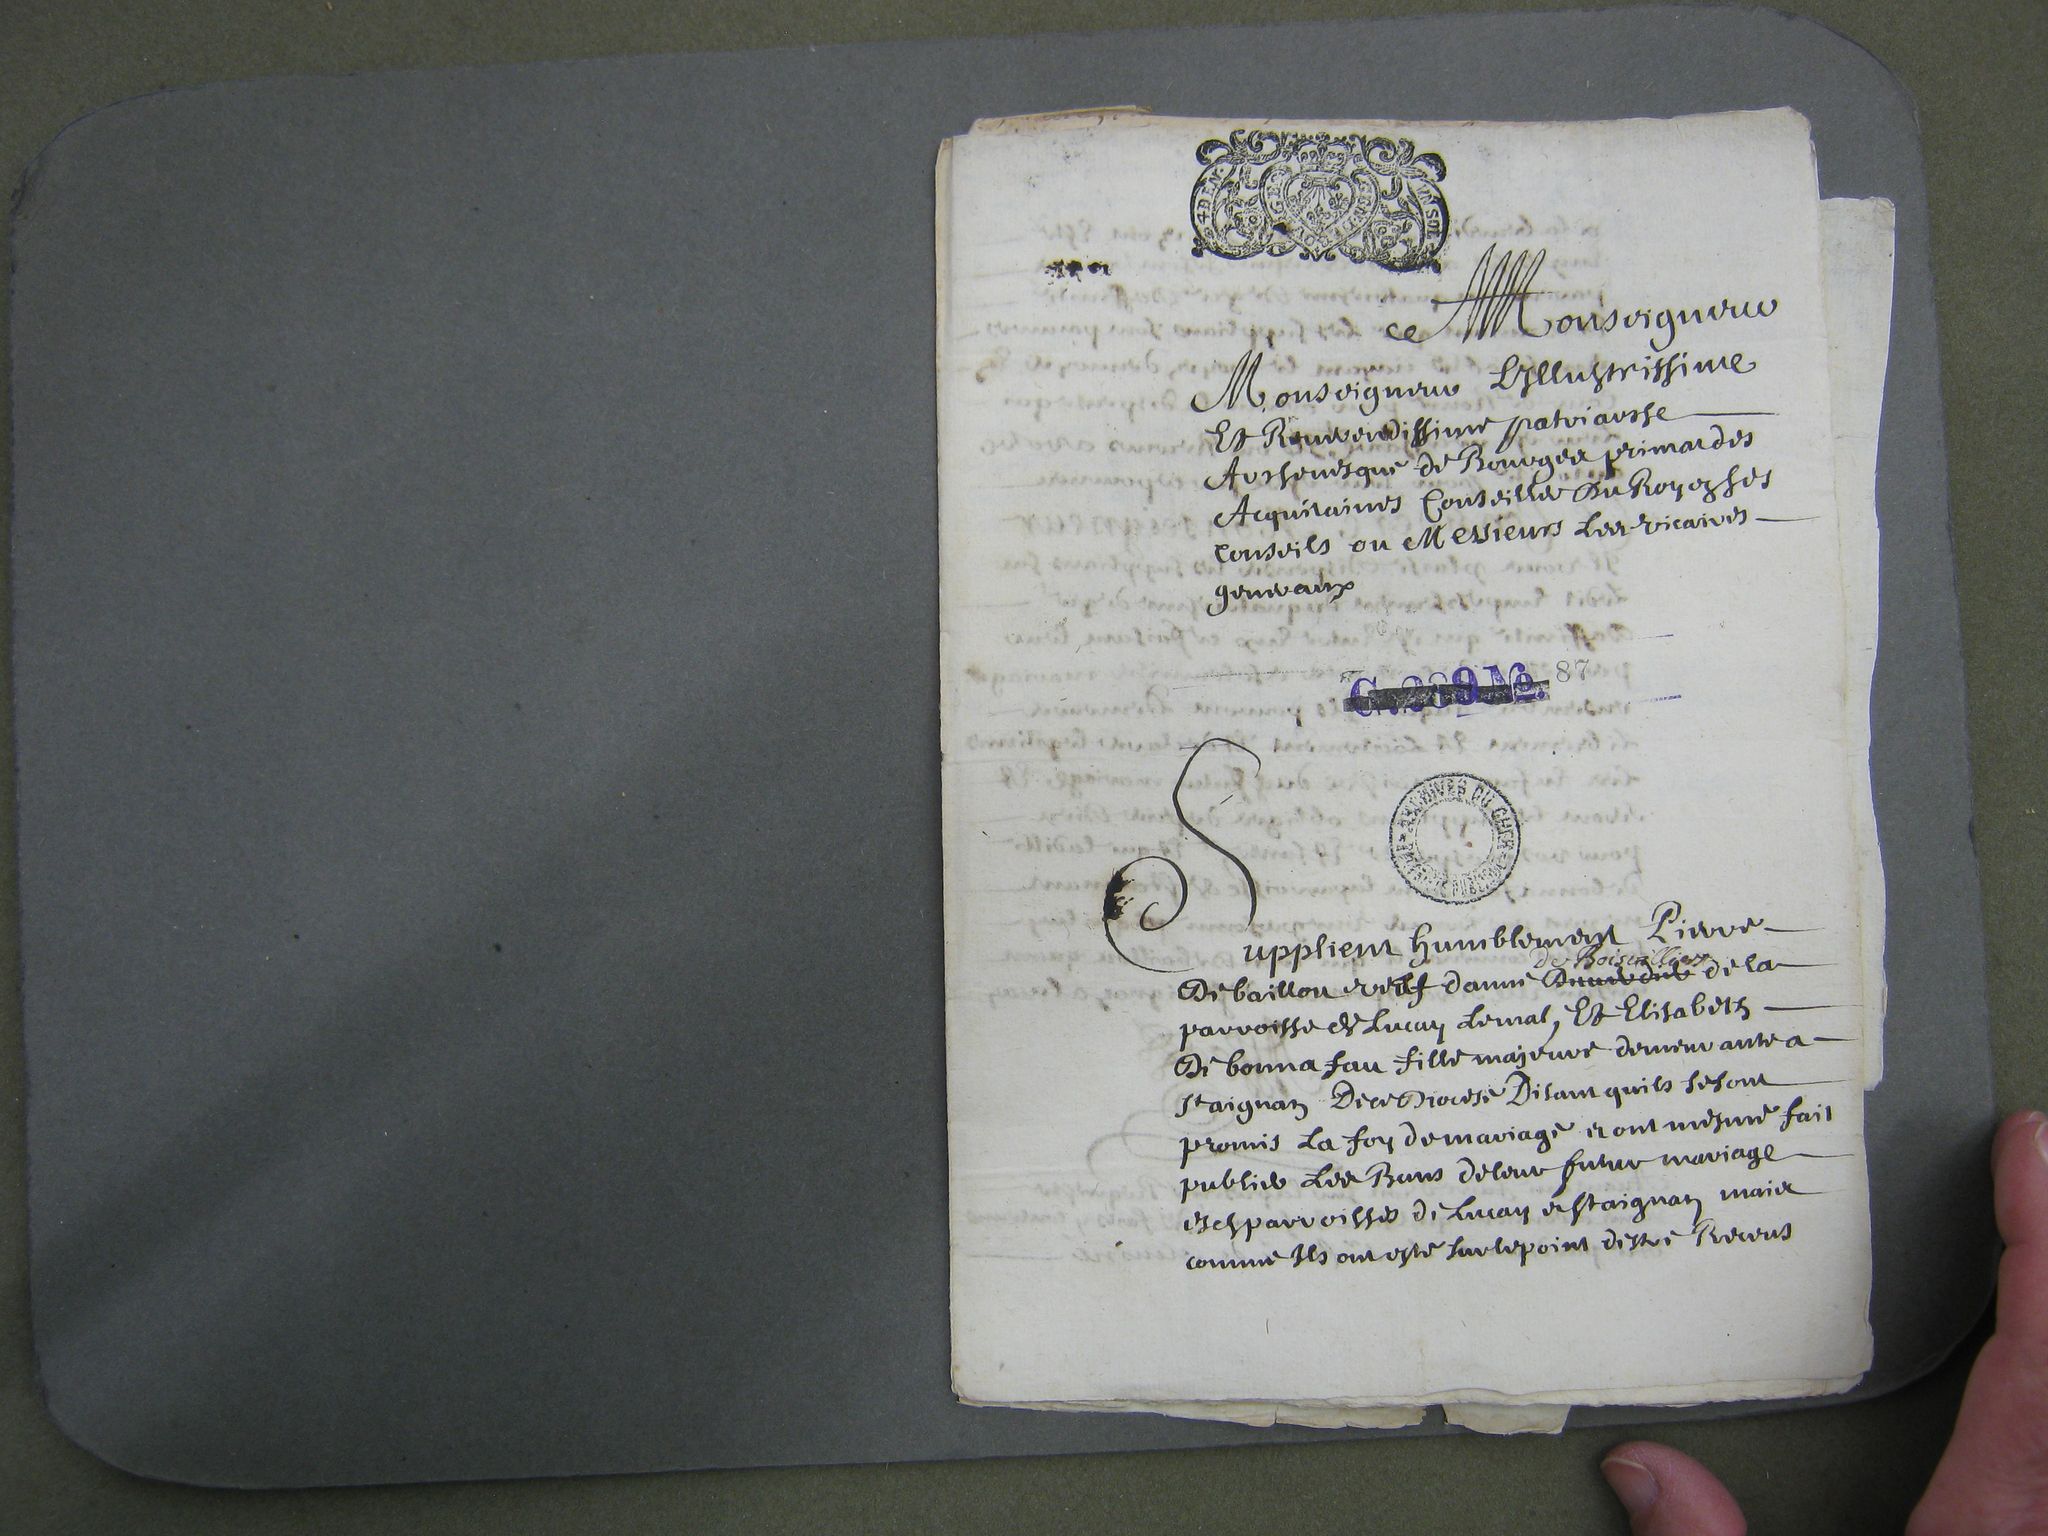 4 DEN.
BOURGES
IN SOL.
A Monseigneur
Monseigneur Lyllustrissime
Et Reuerendissime patriarche
Archeuesque de Bourges primat des
Acquitaines Conseiller Du Roy en ses
Conseils ou Messieurs Les vicaires
generaux
G. 289 No. 87
ARCHIVES DU CHER
Supplient humblement Pierre
de Boisvillier
De baillou veuf danne de la
parroisse de Lucay Lemal, Et Elisabeth
De bonnafau fille majeure demeurante a
st aignan De ce Diocese Disant quils se sont
promis La foy de mariage et ont mesme fait
publier Les Bans de leur futur mariage
es parroisses de Lucay et st aignan mais
comme Ils ont esté sur le point destre Receus